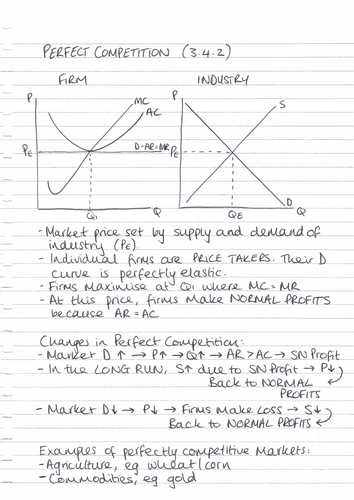 PERFECT COMPETITION (3.4.2)
FIRM INDUSTRY
P MC AC P S
PE D=AR=MR PE
Q1 Q QE Q D
- Market price set by supply and demand of
industry (PE).
- Individual firms are PRICE TAKERS. Their D
curve is perfectly elastic.
- Firms maximise at Q1 where MC=MR
- At this price, firms make NORMAL PROFITS
because AR=AC
Changes in Perfect Competition:
- Market D ↑ → P↑ → Q↑ → AR > AC → SN Profit
- In the LONG RUN, S↑ due to SN Profit → P↓
Back to NORMAL
PROFITS
- Market D↓ → P↓ → Firms Make Loss → S↓
Back to NORMAL PROFITS
Examples of perfectly competitive Markets:
- Agriculture, eg wheat/corn
- Commodities, eg gold